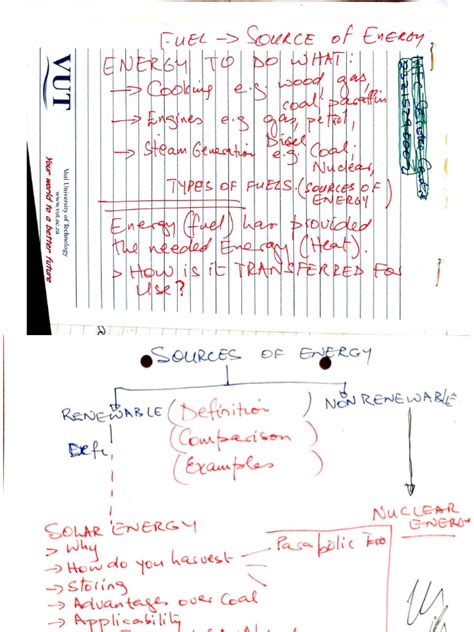 FUEL → SOURCE OF ENERGY
ENERGY TO DO WHAT:
→ Cooking e.g wood, gas,
coal, paraffin
→ Engines e.g gas, petrol,
Disel
→ Steam Generation e.g. Coal,
Nuclear,
TYPES OF FUELS (SOURCES OF
ENERGY)
Energy (fuel) has provided
the needed Energy (Heat).
> HOW IS IT TRANSFERRED FOR
USE?
VUT
Vaal University of Technology
www.vut.ac.za
Your world to a better future
SOURCES OF ENERGY
RENEWABLE (Definition) NON RENEWABLE
Defi (Comparison)
(Examples)
NUCLEAR
ENERGY
SOLAR ENERGY
> Why
→ How do you harvest Parabolic
→ Storing
→ Advantages over Coal
→ Applicability